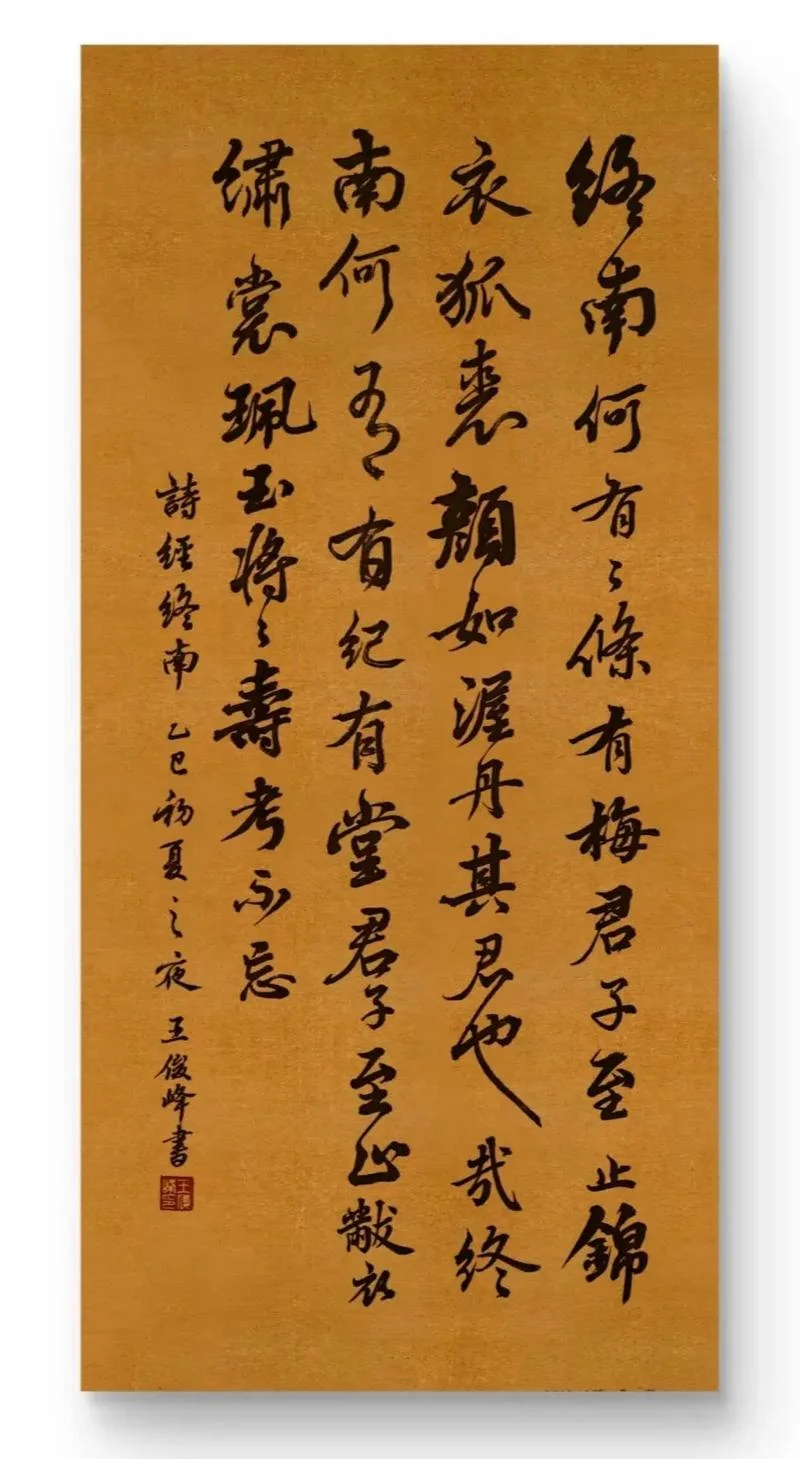 終南何有〻條有梅君子至止錦
衣狐裘顏如渥丹其君也哉終
南何有有紀有堂君子至止黻衣
繡裳珮玉將〻壽考不忘
詩經終南 乙巳初夏之夜 王俊峰書